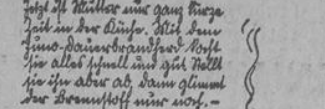 Jetzt ist Mutter nur ganz kurze
Zeit in der Küche. Mit dem
Juno-Dauerbrandherd kocht
sie alles schnell und gut. Stellt
sie ihn aber ab, dann glimmt
der Brennstoff nur noch. –